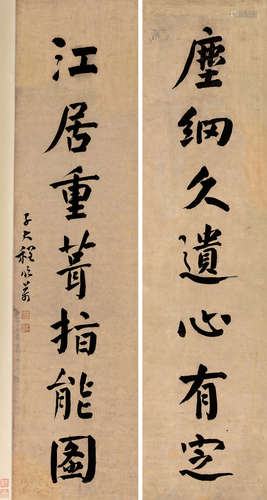 塵網久遺心有定
江居重葺指能圖
子大程頌萬